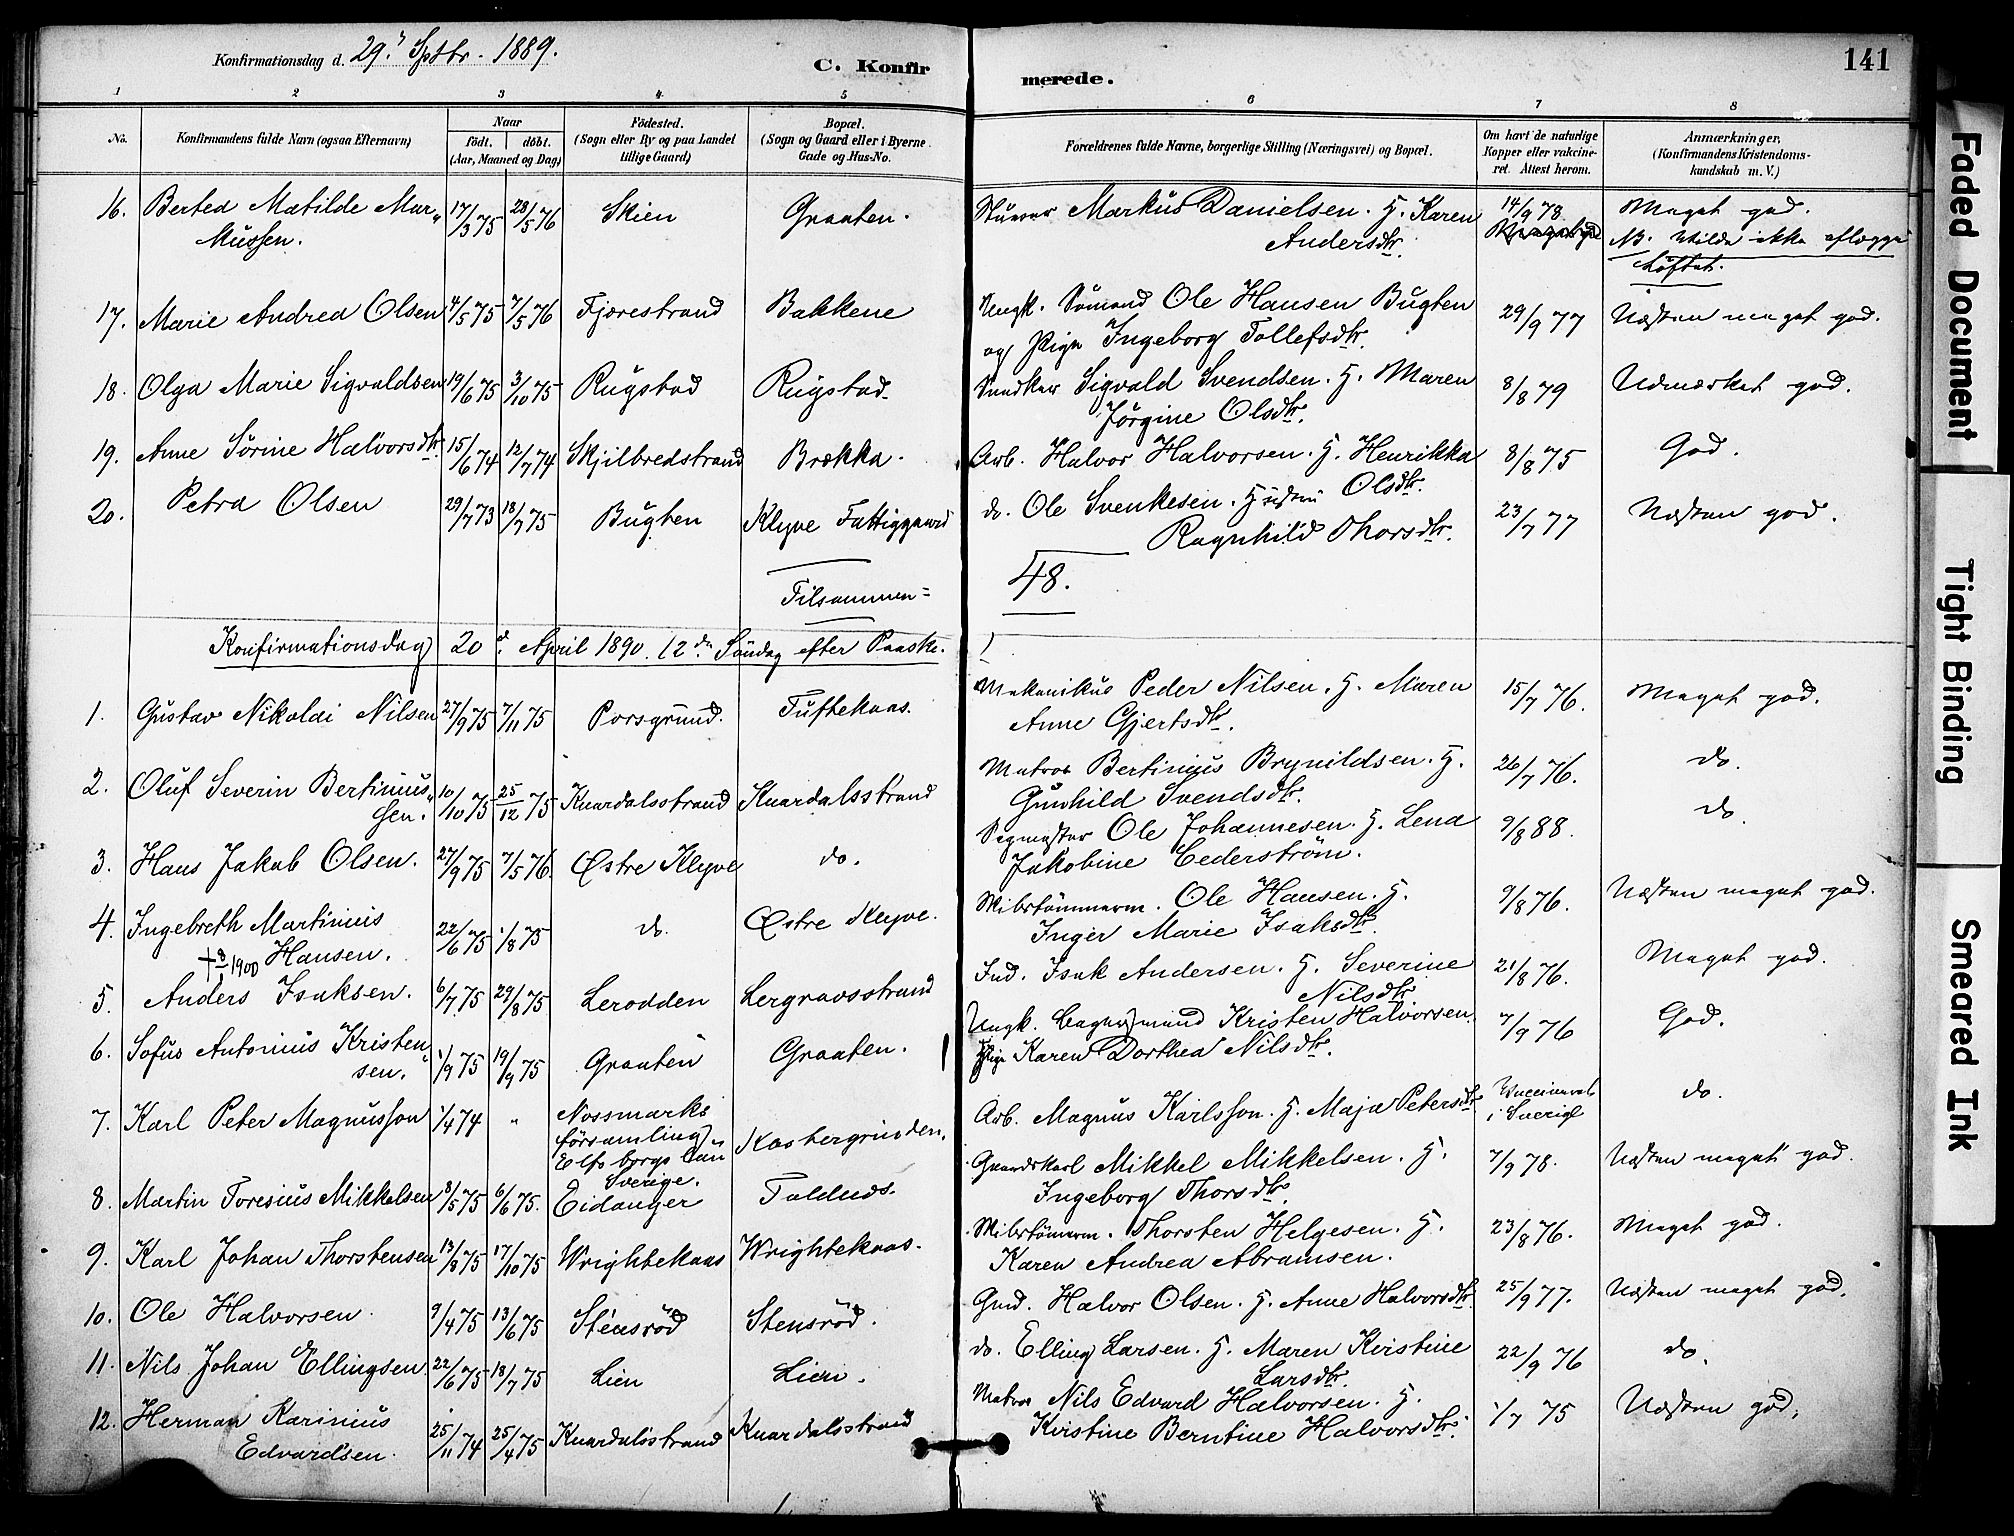 Konfirmationsdag d. 29. Sptbr. 1889.
C. Konfirmerede.
141
1 2 3 4 5 6 7 8
No. Konfirmandens fulde Navn (ogsaa Efternavn) Naar födt. döbt. (Aar, Maaned og Dag) Födested. (Sogn eller By og paa Landet tillige Gaard) Bopæl. (Sogn og Gaard eller i Byerne Gade og Hus-No. Forældrenes fulde Navne, borgerlige Stilling (Næringsvei) og Bopæl. Om havt de naturlige Kopper eller vakcineret. Attest herom. Anmærkninger. (Konfirmandens Kristendomskundskab m. V.)
16. Berthea Matilde Mar- 17/3 75 28/5 76 Skien Graaten. Stuver Markus Danielsen. H. Karen 14/9 78 Meget god.
kussen. Andersdtr. NB. Vilde ikke aflægge
Löftet.
17. Marie Andrea Olsen 4/5 75 7/5 76 Fjærestrand Bakkene Ungk. Sömand Ole Hansen Bugten 29/9 77 Næsten meget god.
og Pige Ingeborg Tollefsdtr.
18. Olga Marie Sigvaldsen 19/6 75 3/10 75 Rugstad Rugstad Sigvald Svendsen. H. Maren 8/8 79 Udmærket god.
Jörgine Olsdtr.
19. Anne Sörine Halvorsdtr. 15/6 74 12/7 74 Skjilbredstrand Brækka. Arb. Halvor Halvorsen. H. Henrikka 8/8 75 God.
Olsdtr.
20. Petra Olsen 29/7 73 18/7 75 Bugten Klyve Fattiggaard do. Ole Svenkesen. 23/7 77 Næsten god.
Ragnhild Thorsdtr.
Tilsammen = 48.
Konfirmationsdag 20d. April 1890. (2den Söndag efter Paaske.)
1. Gustav Nikolai Nilsen 27/9 75 7/11 75 Porsgrund. Tuftekaas. Mekanikus Peder Nilsen. H. Maren 15/7 76. Meget god.
Anne Gjertsdtr.
2. Oluf Severin Bertinius- 10/10 75 25/12 75 Knardalsstrand Knardalsstrand Matros Bertinius Brynildsen. H. 26/7 76. do.
sen. Gunhild Svendsdtr.
3. Hans Jakob Olsen. 27/9 75 7/5 76. Østre Klyve do. Sagmester Ole Johannesen. H. Lena 9/8 88. do.
Jakobine Cederström.
4. Ingebreth Martinius 22/6 75 1/8 75 do. Østre Klyve. Skibstömmerm. Ole Hansen. H. 9/8 76. Næsten meget god.
Hansen. Inger Marie Isaksdtr.
† 1900
5. Anders Isaksen. 6/7 75 29/8 75 Lerodden Lergravsstrand Ind. Isak Andersen. H. Severine 21/8 76. Meget god.
Nilsdtr
6. Sofus Antonius Kristen- 1/9 75 19/9 75 Graaten Graaten. Ungk. Kristen Halvorsen. 7/9 76 God.
sen. Pige Karen Dorthea Nilsdtr.
7. Karl Peter Magnusson 1/4 74 " Nossmarks församling Elfsborgs Län Sverige. Kastergrinden. Arb. Magnus Karlsson. H. Maja Petersdtr Vaccineret i Sverige do.
8. Martin Toresius Mikkelsen 8/5 75 6/6 75. Eidanger Foldnes. Gaardskarl Mikkel Mikkelsen. H. 7/9 78. Næsten meget god.
Ingeborg Thorsdtr.
9. Karl Johan Thorstensen 13/8 75 17/10 75 Wrightekaas Wrightekaas. Skibstömerm. Thorsten Helgesen. H. 23/8 76. Meget god.
Karen Andrea Abramsen.
10. Ole Halvorsen 9/4 75 13/6 75 Stensröd Stensröd. Gmd. Halvor Olsen. H. Anne Halvorsdtr 25/9 77. Næsten meget god.
11. Nils Johan Ellingsen 22/6 75 18/7 75 Lien Lien. do. Elling Larsen. H. Maren Kristine 22/9 76 do.
Larsdtr.
12. Herman Karinius 25/11 74 25/4 75 Knardalsstrand Knardalsstrand Matros Nils Edvard Halvorsen. H. 1/7 75 Næsten god.
Edvardsen. Kristine Berntine Halvorsdtr.
Faded Document
Tight Binding
Smeared Ink